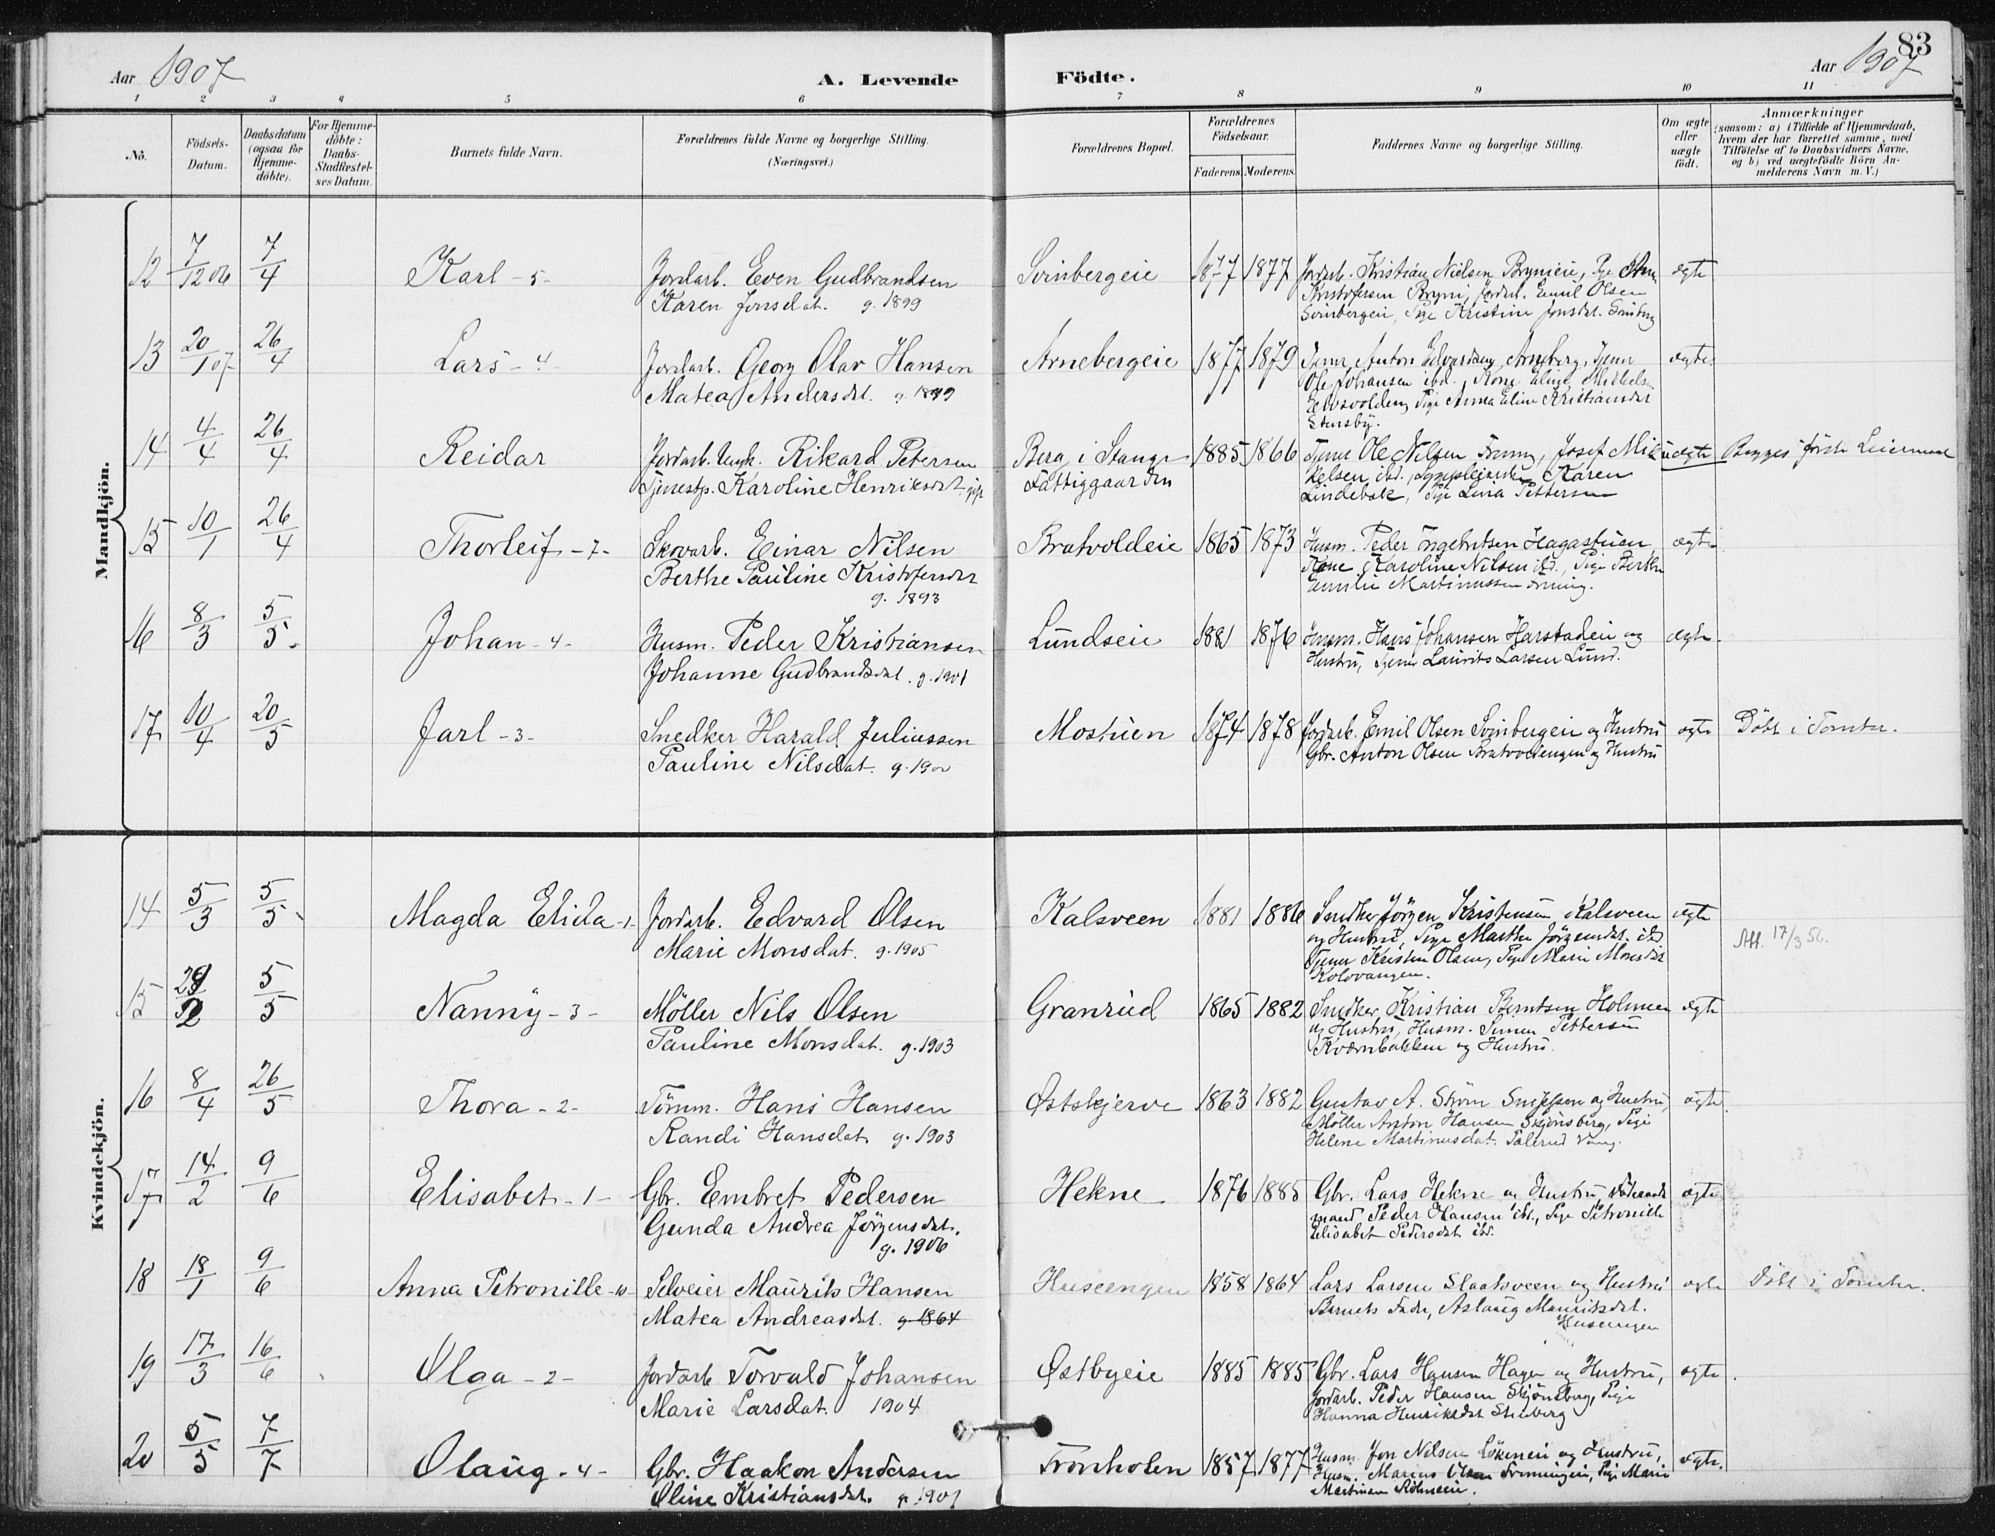 83
Aar 1907
A. Levende
Födte.
Aar 1907
1 2 3 4 5 6 7 8 9 10 11
No.
Födsels-
Datum.
Daabsdatum
(ogsaa for
Hjemme-
döbte).
For Hjemme-
döbte:
Daabs-
Stadfæstel-
ses Datum.
Barnets fulde Navn.
Forældrenes fulde Navne og borgerlige Stilling.
(Næringsvei.)
Forældrenes Bopæl.
Forældrenes
Födselsaar.
Faderens. Moderens.
Faddernes Navne og borgerlige Stilling.
Om ægte
eller
uægte
födt.
Anmærkninger
(saasom: a) i Tilfælde af Hjemmedaab,
hvem der har forrettet samme, med
Tilföielse af to Daabsvidners Navne,
og b) ved uægtefödte Börn An-
melderens Navn m. V.)
Mandkjön.
12 7/12 06 7/4 Karl - 5 - Jordarb. Even Gudbrandsen
Karen Jonsdat. g. 1899
Svinbergeie 1877 1877 Jordarb. Kristian Nielsen Brynieie, Pige
Kristofersen Bryni, Jordarb. Emil Olsen
Svinbergeie, Pige Kristine Jonsdat. Svinberg
ægte
13 20/1 07 26/4 Lars - 4 - Jordarb. Georg Olav Hansen
Matea Andersdat. g. 1899
Arnebergeie 1877 1879 Tjener Anton Edvardsen Arneberg, Tjener
Ole Johansen ibd., Kone
Pige Anna Eline Kristiansdat
Stensby.
ægte
14 4/4 26/4 Reidar Jordarb. Ungk. Rikard Petersen
Tjenestp. Karoline Henriksdat. gift
Berg i Stange
Fattiggaarden
1885 1866 Tjener Ole Nilsen, Josef Mik-
kelsen ibd., Karen
Lindebak, Pige Lina Pettersen
uægte Begges förste Leiermaal
15 10/1 26/4 Thorleif - 7 - Skovarb. Einar Nilsen
Berthe Pauline Kristofersdat
g. 1893
Bratvoldeie 1865 1873 Husm. Peder Engebretsen Hagastuen,
Kone Karoline Nilsen ibd., Pige Berthe
Emilie Martinussen
ægte
16 8/3 5/5 Johan - 4 - Husm. Peder Kristiansen
Johanne Gudbrandsdat. g. 1901
Lundseie 1881 1876 Husm. Hans Johansen Harstadeie og
Hustru, Tjener Laurits Larsen Lund.
ægte
17 10/4 20/5 Jarl - 3 - Snedker Harald Juliussen
Pauline Nilsdat. g. 1900
Mostuen 1874 1878 Jordarb. Emil Olsen Svinbergeie og Hustru
Gbr. Anton Olsen Bratvoldengen og Hustru
ægte Döbt i Tomter.
Kvindekjön.
14 5/3 5/5 Magda Elida - 1 - Jordarb. Edvard Olsen
Marie Monsdat. g. 1905
Kalsveen 1881 1886 Snedker Jörgen Kristensen Kalsveen
og Hustru, Pige Marthe Jörgensdat. ibd
Tjener Kristen Olsen, Pige Marie Monsdat
Kolovangen.
ægte Att. 17/3 56.
15 2 5/5 Nanny - 3 - Möller Nils Olsen
Pauline Monsdat. g. 1903
Granrud 1865 1882 Snedker Kristian Berntsen Holmen
og Hustru, Husm. Simen Pettersen
Kværnbakken og Hustru.
ægte
16 8/4 26/5 Thora - 2 - Tömm. Hans Hansen
Randi Hansdat. g. 1903
Østskjerve 1863 1882 Gustav A. Ström og Hustru,
Möller Anton Hansen Skjönsberg, Pige
Helene Martinusdat. Vang.
ægte
17 14/2 9/6 Elisabet - 1 - Gbr. Embret Pedersen
Gunda Andrea Jörgensdat.
g. 1906
Hekne 1876 1885 Gbr. Lars Hekne og Hustru, Föderaads
mand Peder Hansen ibd., Pige Petronille
Elisabet Pedersdat ibd.
ægte
18 18/1 9/6 Anna Petronille - 10 Selveier Maurits Hansen
Matea Andreasdat. g. 1864
Huseengen 1858 1864 Lars Larsen Slaatsveen og Hustru
Barnets Fader, Aslaug Mauritsdat.
Huseengen
ægte Döbt i Tomter.
19 17/3 16/6 Olga - 2 - Jordarb Torvald Johansen
Marie Larsdat. 1904
Østbyeie 1885 1885 Gbr. Lars Hansen Hagen og Hustru,
Jordarb. Peder Hansen Skjönsberg, Pige
Hanna Henriksdat Stenberg
ægte
20 5/5 7/7 Olaug - 4 - Gbr. Haakon Andersen
Oline Kristiansdat. g. 1901
Tronholen 1857 1877 Husm. Jon Nilsen Lökeneie og Hustru,
Husm. Marius Olsen, Pige Marie
Martinsen
ægte.